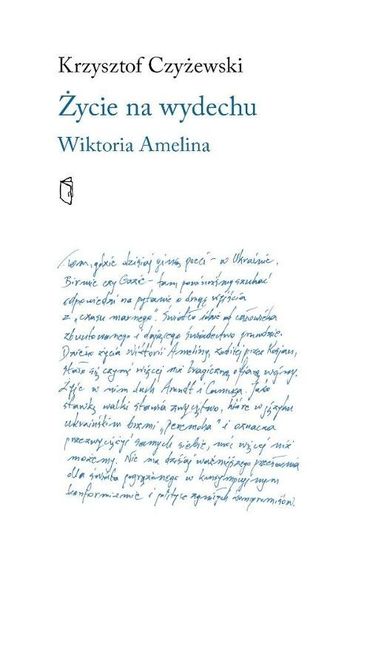 Krzysztof Czyżewski
Życie na wydechu
Wiktoria Amelina
Tam, gdzie dzisiaj giną poeci – w Ukrainie,
Birmie czy Gazie – tam powinniśmy szukać
odpowiedzi na pytanie o drogę wyjścia
z „czasu marnego". Światło idzie od człowieka
zbuntowanego i dającego świadectwo prawdzie.
życia Wiktorii Ameliny, zabitej przez Rosjan,
stało się czymś więcej niż tragiczną ofiarą wojny.
Żyje w nim duch Arendt i Camusa. Jako
stawkę walki stawia zwycięstwo, które w języku
ukraińskim brzmi „Peremoha" i oznacza
przezwyciężyć samych siebie, móc więcej niż
możemy. Nie ma dzisiaj ważniejszego przesłania
dla świata pogrążonego w konsumpcyjnym
konformizmie i polityce zgniłych kompromisów.